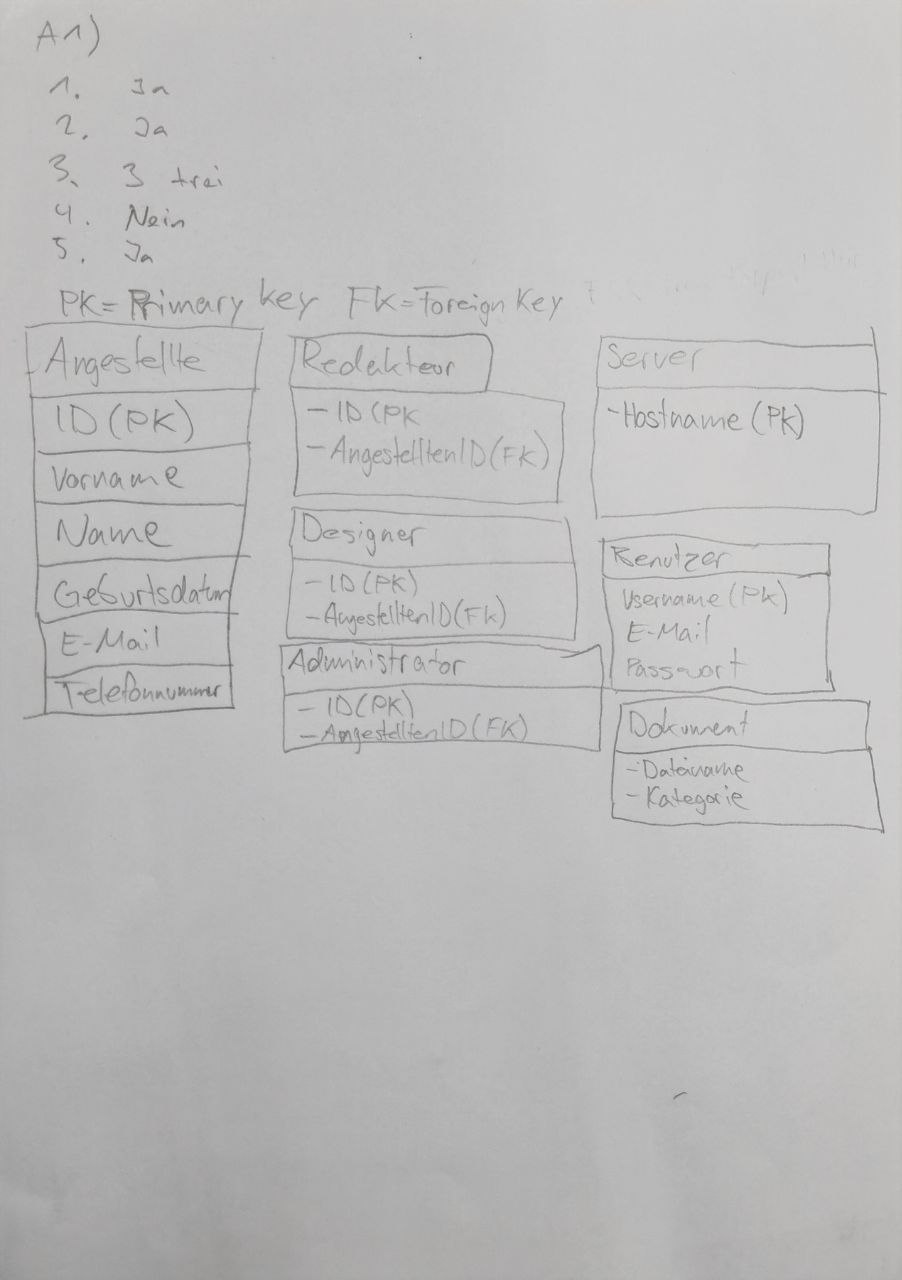 A1)
1. Ja
2. Ja
3. 3
4. Nein
5. Ja
PK = Primary Key FK = Foreign Key
Angestellte
ID (PK)
Vorname
Name
Geburtsdatum
E-Mail
Telefonnummer
Redakteur
- ID (PK
- AngestelltenID (FK)
Designer
- ID (PK)
- AngestelltenID (FK)
Administrator
- ID (PK)
- AngestelltenID (FK)
Server
- Hostname (PK)
Benutzer
Username (PK)
E-Mail
Passwort
Dokument
- Dateiname
- Kategorie